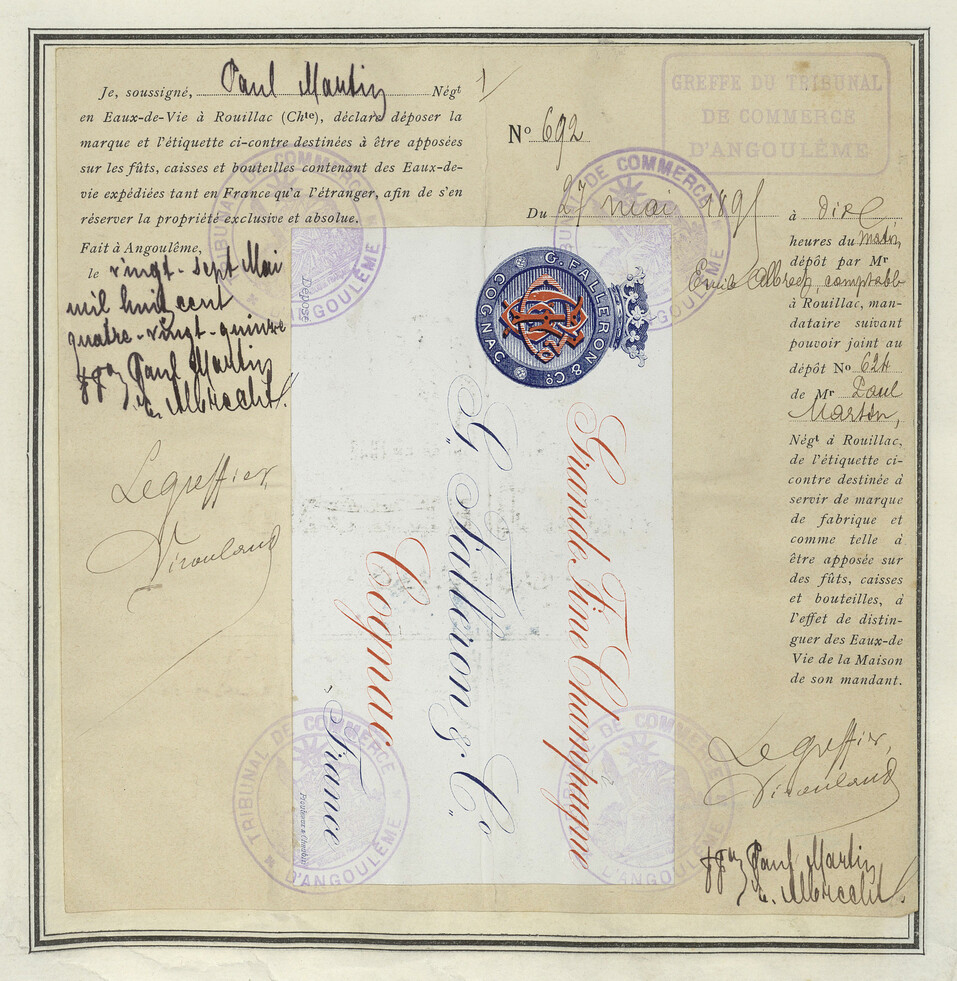 Je, soussigné, Paul Martin Négt
en Eaux-de-Vie à Rouillac (Chte), déclare déposer la
marque et l'étiquette ci-contre destinées à être apposées
sur les fûts, caisses et bouteilles contenant des Eaux-de-
vie expédiées tant en France qu'a l'étranger, afin de s'en
réserver la propriété exclusive et absolue.
Fait à Angoulême,
le vingt-sept Mai
mil huit cent
quatre-vingt-quinze
Paul Martin
E. Albrecht
Le greffier,
Virouland
1/
GREFFE DU TRIBUNAL
DE COMMERCE
D'ANGOULÊME
No 692
Du 27 mai 1895 à dix
heures du matin
dépôt par Mr
Emile Albrecht, comptable
à Rouillac, man-
dataire suivant
pouvoir joint au
dépôt No 624
de Mr Paul
Martin,
Négt à Rouillac,
de l'étiquette ci-
contre destinée à
servir de marque
de fabrique et
comme telle à
être apposée sur
des fûts, caisses
et bouteilles, à
l'effet de distin-
guer des Eaux-de
Vie de la Maison
de son mandant.
Le greffier,
Virouland
Paul Martin
E. Albrecht
G. FALLERON & Co
COGNAC
Grande Fine Champagne
"G. Falleron & Co"
Cognac
France
Déposé
TRIBUNAL DE COMMERCE
D'ANGOULÊME
TRIBUNAL DE COMMERCE
D'ANGOULÊME
TRIBUNAL DE COMMERCE
D'ANGOULÊME
TRIBUNAL DE COMMERCE
D'ANGOULÊME